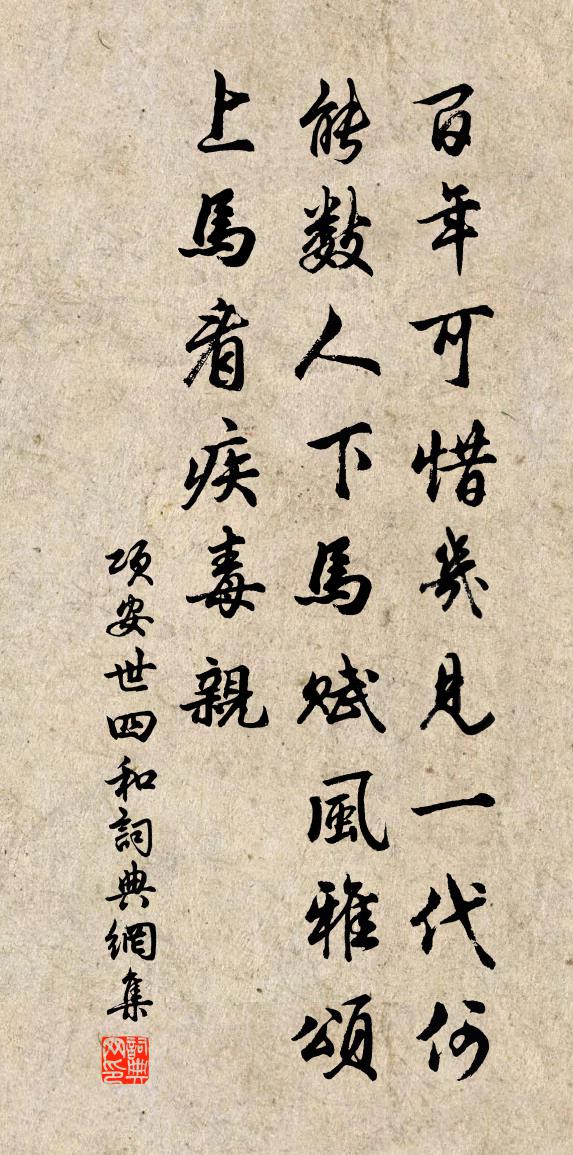 百年可惜幾見一代何
能數人下馬賦風雅頌
上馬看疾毒親
項安世四和詞典網集
詞典網印